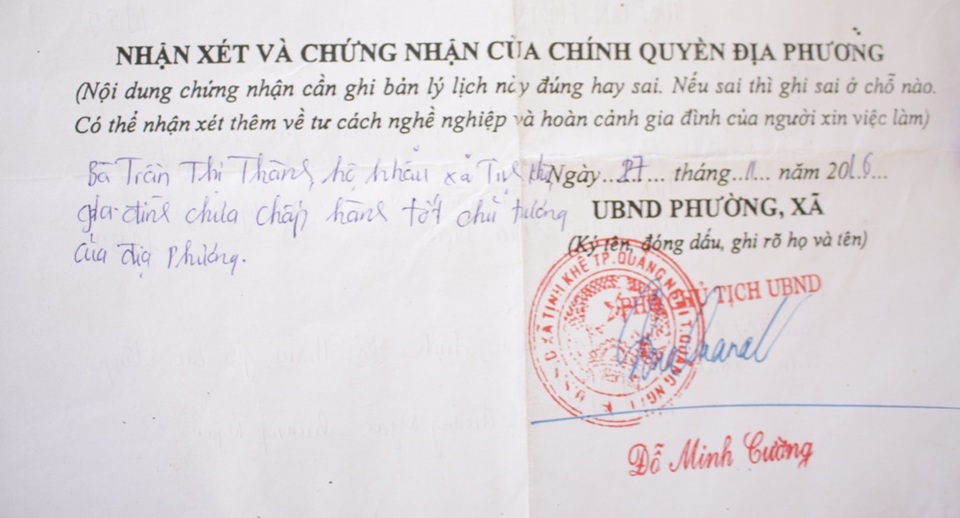 NHẬN XÉT VÀ CHỨNG NHẬN CỦA CHÍNH QUYỀN ĐỊA PHƯƠNG
(Nội dung chứng nhận cần ghi bản lý lịch này đúng hay sai. Nếu sai thì ghi sai ở chỗ nào.
Có thể nhận xét thêm về tư cách nghề nghiệp và hoàn cảnh gia đình của người xin việc làm)
Bà Trần Thị Thành, hộ khẩu xã Tịnh Khê
gia đình chưa chấp hành tốt chủ trương
của địa phương.
Ngày...27... tháng..11... năm 2016...
UBND PHƯỜNG, XÃ
(Ký tên, đóng dấu, ghi rõ họ và tên)
PHÓ CHỦ TỊCH UBND
U.B.N.D XÃ TỊNH KHÊ TP.QUẢNG NGÃI T.QUẢNG NGÃI
Đỗ Minh Cường